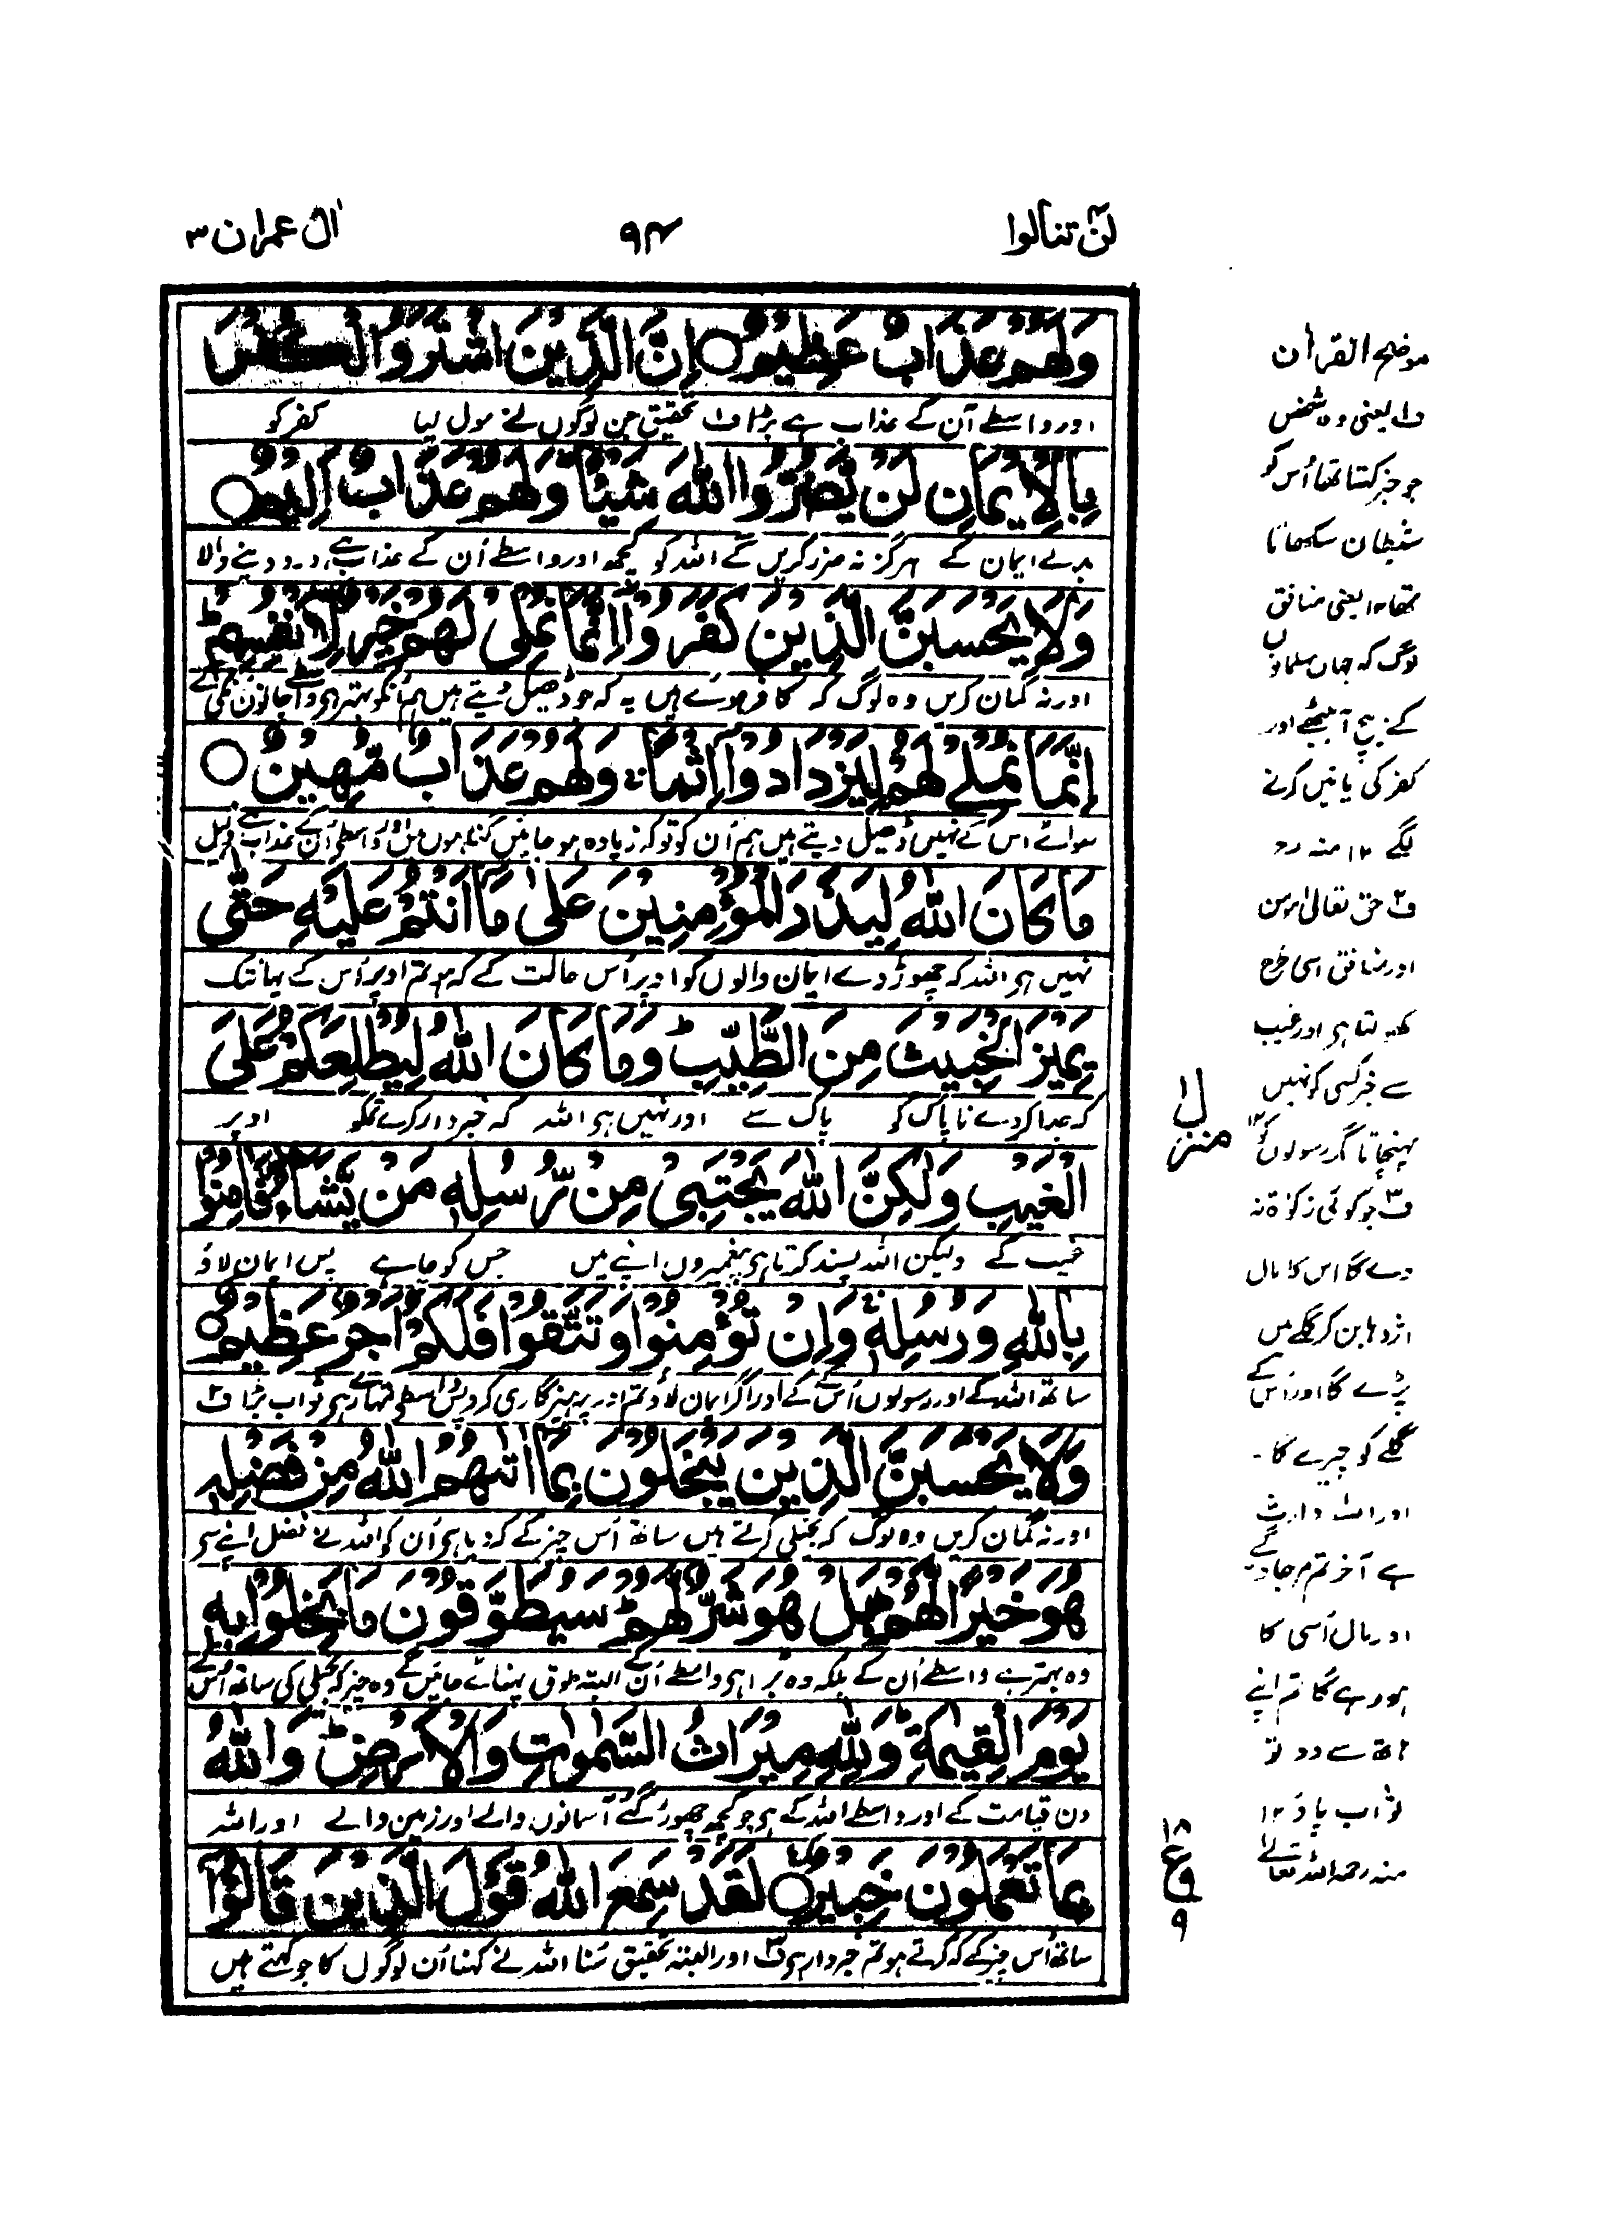 لن تنالوا
۹۴
ال عمران ۳
وَلَهُمْ عَذَابٌ عَظِيمٌ ○ إِنَّ الَّذِينَ اشْتَرَوُا الْكُفْرَ
اور واسطے اُن کے عذاب ہے بڑا ف۱ تحقیق جن لوگوں نے مول لیا کفر کو
بِالْإِيمَانِ لَنْ يَضُرُّوا اللَّهَ شَيْئًا وَلَهُمْ عَذَابٌ أَلِيمٌ ○
بدلے ایمان کے ہرگز نہ ضرر کریں گے اللہ کو کچھ اور واسطے اُن کے عذاب ہے درد دینے والا
وَلَا يَحْسَبَنَّ الَّذِينَ كَفَرُوا أَنَّمَا نُمْلِي لَهُمْ خَيْرٌ لِأَنْفُسِهِمْ ط
اور نہ گمان کریں وہ لوگ کہ کافر ہوئے ہیں یہ کہ جو ڈھیل دیتے ہیں ہم اُنکو بہتر ہی واسطے جانوں اُن کی کے
إِنَّمَا نُمْلِي لَهُمْ لِيَزْدَادُوا إِثْمًا ۚ وَلَهُمْ عَذَابٌ مُهِينٌ ○
سوائے اس کے نہیں ڈھیل دیتے ہیں ہم اُن کو تو کہ زیادہ ہو جائیں گناہوں میں اور واسطے اُن کے عذاب ہے ذلیل
مَا كَانَ اللَّهُ لِيَذَرَ الْمُؤْمِنِينَ عَلَىٰ مَا أَنْتُمْ عَلَيْهِ حَتَّىٰ
نہیں ہی اللہ کہ چھوڑ دے ایمان والوں کو اوپر اُس حالت کے کہ ہو تم اوپر اُس کے یہانتک
يَمِيزَ الْخَبِيثَ مِنَ الطَّيِّبِ ط وَمَا كَانَ اللَّهُ لِيُطْلِعَكُمْ عَلَى
کہ جدا کر دے ناپاک کو پاک سے اور نہیں ہی اللہ کہ خبردار کرے تمکو اوپر
الْغَيْبِ وَلَٰكِنَّ اللَّهَ يَجْتَبِي مِنْ رُسُلِهِ مَنْ يَشَاءُ فَآمِنُوا
غیب کے ولیکن اللہ پسند کرتا ہی پیغمبروں اپنے میں جس کو چاہے پس ایمان لاؤ
بِاللَّهِ وَرُسُلِهِ ۚ وَإِنْ تُؤْمِنُوا وَتَتَّقُوا فَلَكُمْ أَجْرٌ عَظِيمٌ ○
ساتھ اللہ کے اور رسولوں اُس کے کے اور اگر ایمان لاؤ تم اور پرہیزگاری کرو پس واسطے تمہارے ہی ثواب بڑا ف۲
وَلَا يَحْسَبَنَّ الَّذِينَ يَبْخَلُونَ بِمَا آتَاهُمُ اللَّهُ مِنْ فَضْلِهِ
اور نہ گمان کریں وہ لوگ کہ بخیلی کرتے ہیں ساتھ اُس چیز کے کہ دیا ہی اُن کو اللہ نے فضل اپنے سی
هُوَ خَيْرًا لَهُمْ ط بَلْ هُوَ شَرٌّ لَهُمْ ط سَيُطَوَّقُونَ مَا بَخِلُوا بِهِ
وہ بہتر ہے واسطے اُن کے بلکہ وہ بُرا ہی واسطے اُن کے البتہ طوق پہنائے جائیں گے وہ چیز کہ بخیلی کی ساتھ اُس کے
يَوْمَ الْقِيَامَةِ ط وَلِلَّهِ مِيرَاثُ السَّمَاوَاتِ وَالْأَرْضِ ط وَاللَّهُ
دن قیامت کے اور واسطے اللہ کے ہی جو کچھ چھوڑ گئے آسمانوں والے اور زمین والے اور اللہ
بِمَا تَعْمَلُونَ خَبِيرٌ ○ لَقَدْ سَمِعَ اللَّهُ قَوْلَ الَّذِينَ قَالُوا
ساتھ اُس چیز کے کہ کرتے ہو تم خبردار ہی ف۳ اور البتہ تحقیق سُنا اللہ نے کہنا اُن لوگوں کا جو کہتے ہیں
موضح القرآن
ف۱ یعنی وہ شخص
جو خبر کہتا تھا اُس کو
شیطان سکھاتا
تھا ۱۲ یعنی منافق
لوگ کہ جہاں مسلمانوں
کے بیچ آ بیٹھے اور
کفر کی باتیں کرنے
لگے ۱۲ منہ رح
ف۲ حق تعالیٰ مومن
اور منافق اسی طرح
کھولتا ہی اور غیب
سے خبر کسی کو نہیں
پہنچاتا مگر رسولوں کو ۱۲
ف۳ جو کوئی زکوٰۃ نہ
دے گا اس کا مال
اژدہا بن کر گلے میں
پڑے گا اور اُس کے
گلے کو چیرے گا -
اور اللہ وارث
ہے آخر تم مر جاؤ گے
اور مال اُسی کا
ہو رہے گا تم اپنے
ہاتھ سے دو تو
ثواب پاؤ ۱۲
منہ رحمہ اللہ تعالے
منزل ۱
۱۸
ع
۹